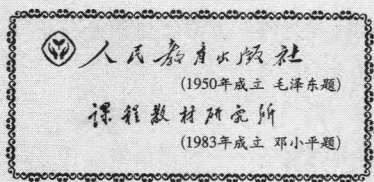 人民教育出版社
(1950年成立 毛泽东题)
课程教材研究所
(1983年成立 邓小平题)